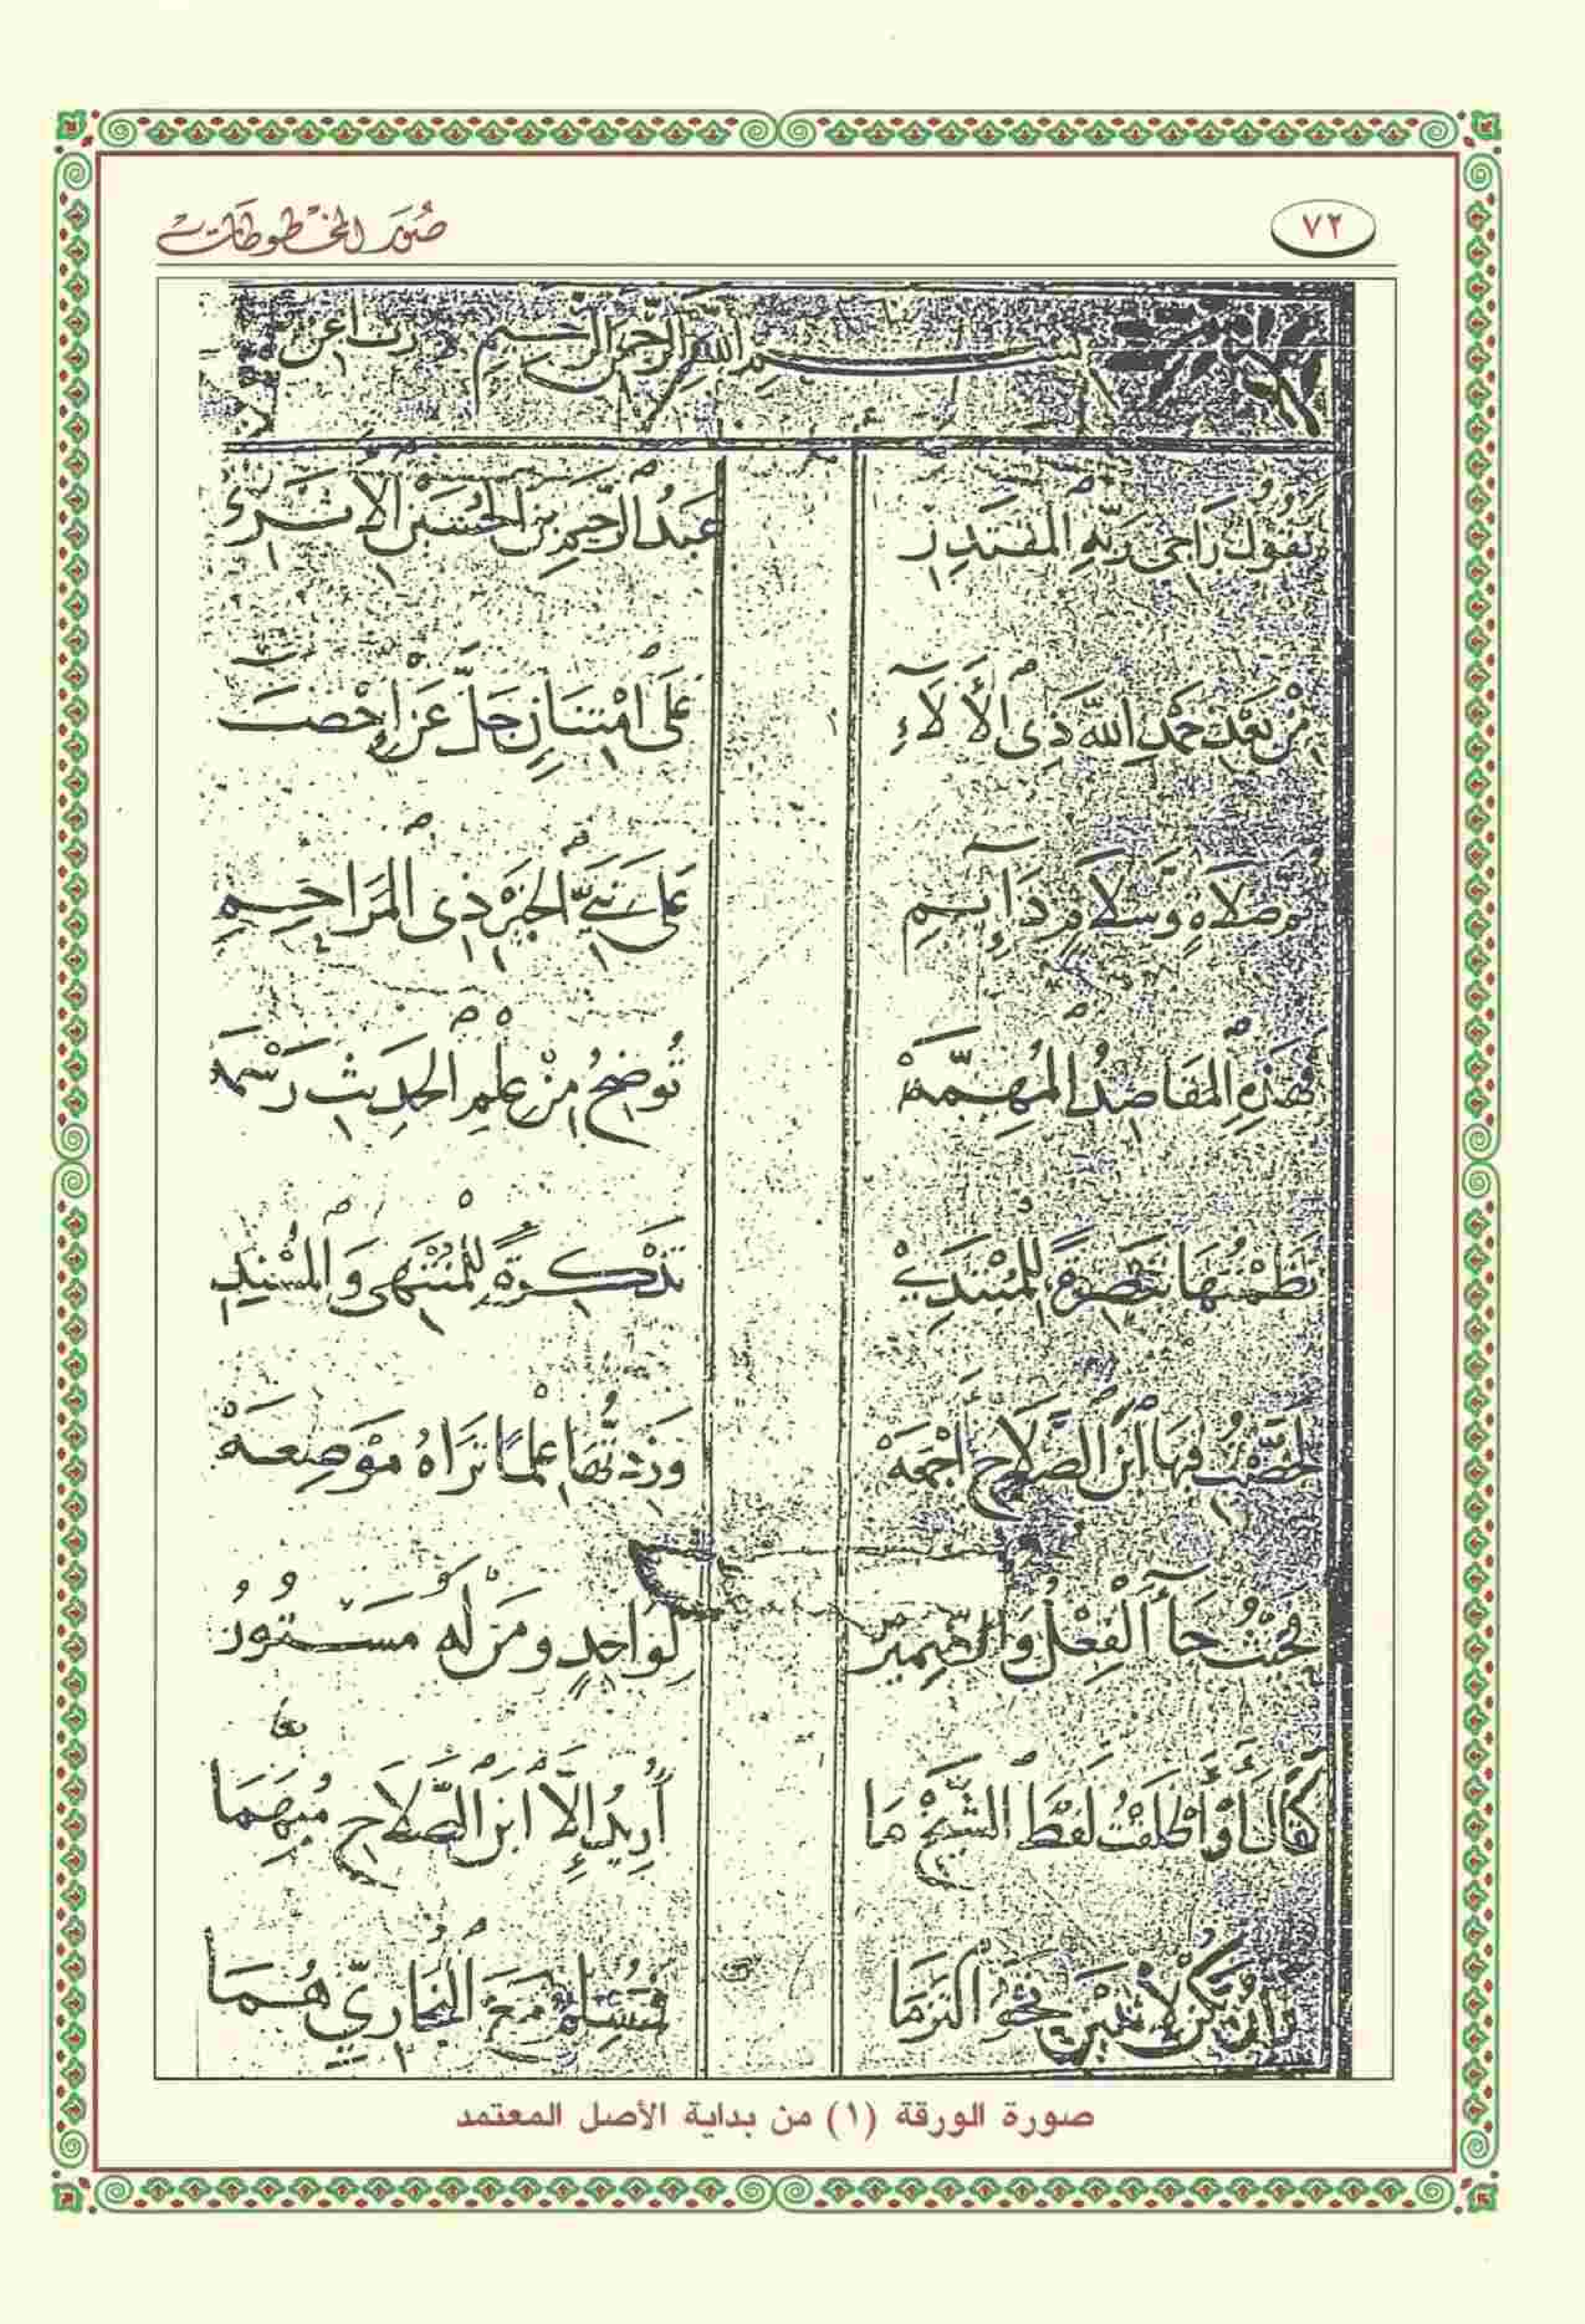 ٧٢
صُوَر المخْطُوطَات
بسم الله الرحمن الرحيم رب أعن
يَقُولُ رَاجِي رَبِّهِ الْمُقْتَدِرِ عَبْدُ الرَّحِيمِ بنُ الْحُسَيْنِ الْأَثَرِي
مِنْ بَعْدِ حَمْدِ اللهِ ذِي الْأَلَآءِ عَلَى امْتِنَانٍ جَلَّ عَنْ إِحْصَاءِ
ثُمَّ صَلَاةٍ وَسَلَامٍ دَآئِمِ عَلَى نَبِيِّ الْخَيْرِ ذِي الْمَرَاحِمِ
فَهَذِهِ الْمَقَاصِدُ الْمُهِمَّهْ تُوضِحُ مِنْ عِلْمِ الْحَدِيثِ رَسْمَهْ
نَظَمْتُهَا تَبْصِرَةً لِلْمُبْتَدِيْ تَذْكِرَةً لِلْمُنْتَهِي وَالْمُسْنِدِ
لَخَّصْتُ فِيهَا ابْنَ الصَّلَاحِ أَجْمَعَهْ وَزِدْتُهَا عِلْمًا تَرَاهُ مَوْضِعَهْ
فَحَيْثُ جَآءَ الْفِعْلُ وَالضَّمِيرُ لِوَاحِدٍ وَمَنْ لَهُ مَسْتُورُ
كَقَالَ أَوْ أَطْلَقْتُ لَفْظَ الشَّيْخِ مَا أُرِيدُ إِلَّا ابْنَ الصَّلَاحِ مُبْهَمَا
معا
وَإِنْ يَكُنْ لِاثْنَيْنِ نَحْوُ الْتَزَمَا فَمُسْلِمٌ مَعَ الْبُخَارِيِّ هُمَا
صورة الورقة (١) من بداية الأصل المعتمد